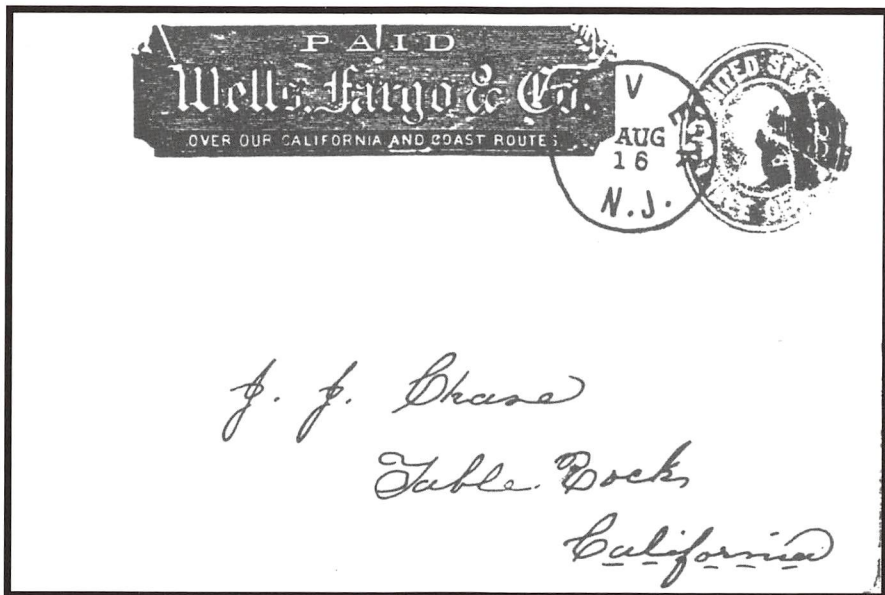 PAID
Wells, Fargo & Co.
OVER OUR CALIFORNIA AND COAST ROUTES
V
AUG
16
N.J.
UNITED STA
J. J. Chase
Table Rock
California